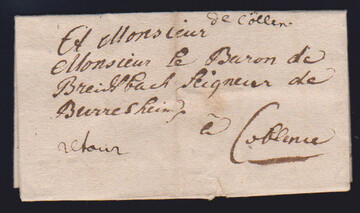 de Cöllen
A Monsieur
Monsieur le Baron de
Breidbach Seigneur de
Burresheim
à Coblence
retour